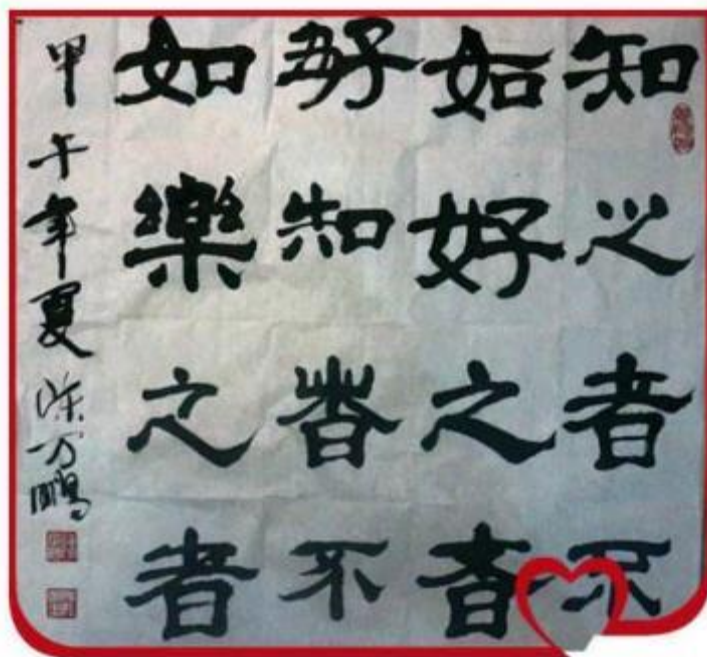 知之者不
如好之者
好知者不
如樂之者
甲午年夏 陈万鹏